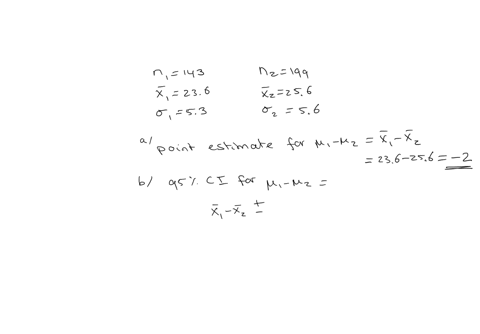 n₁ = 143 n₂ = 199
x̄₁ = 23.6 x̄₂ = 25.6
σ₁ = 5.3 σ₂ = 5.6
a/ point estimate for μ₁-μ₂ = x̄₁-x̄₂
= 23.6-25.6 = -2
b/ 95% CI for μ₁-μ₂ =
x̄₁-x̄₂ ±